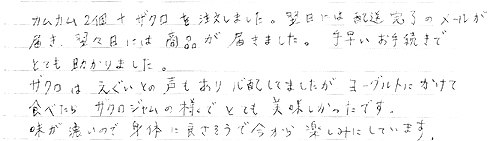 カムカム2個+ザクロを注文しました。翌日には配送完了のメールが
届き、翌々日には商品が届きました。手早いお手続きで
とても助かりました。
ザクロはえぐいとの声もあり心配してましたがヨーグルトにかけて
食べたらザクロジャムの様でとても美味しかったです。
味が濃いので身体に良さそうで今から楽しみにしています。